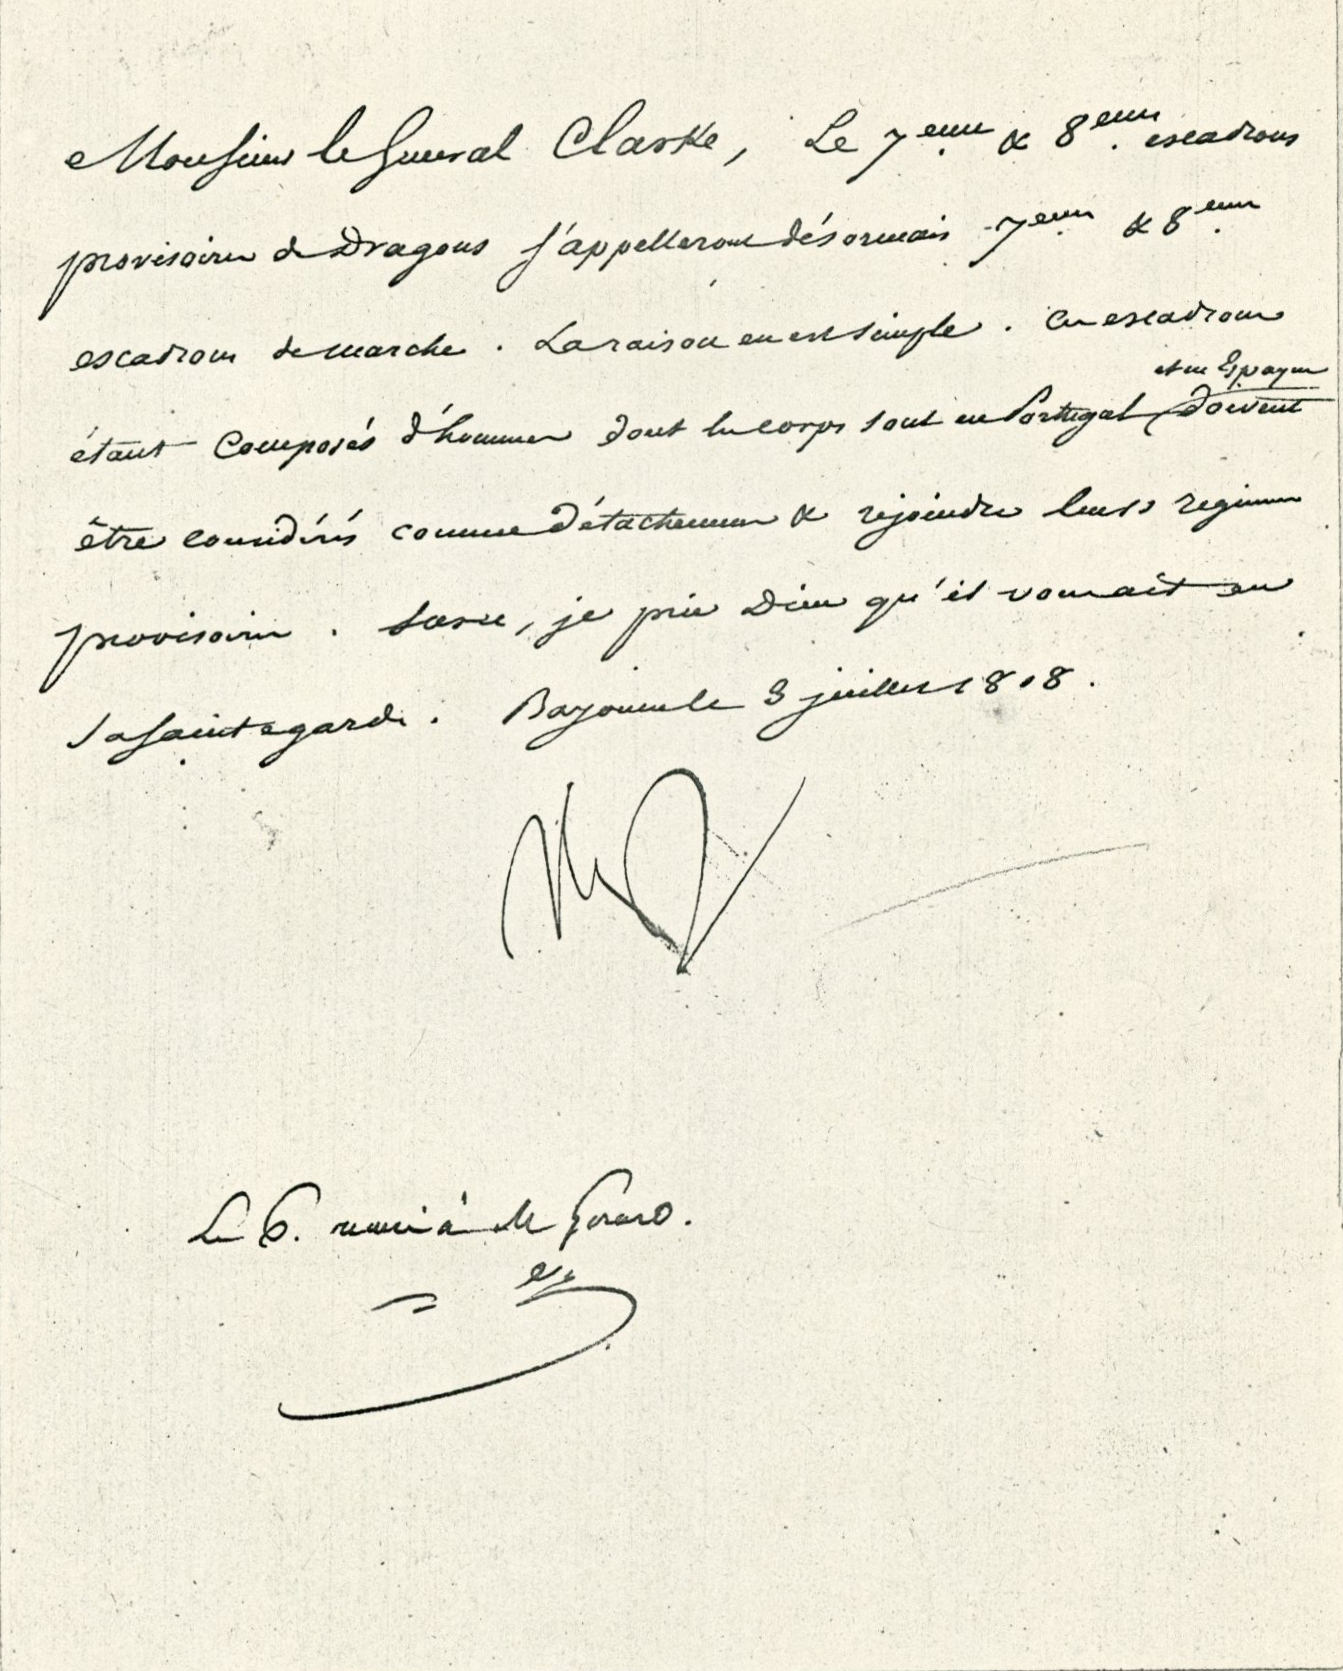 Monsieur le General Clarke, Le 7eme & 8eme escadrons
provisoires de Dragons s'appelleront désormais 7eme & 8eme
escadrons de marche. La raison en est simple. Ces escadrons
et en Espagne
étant composés d'hommes dont les corps sont en Portugal doivent
être considérés comme détachemens & rejoindre leurs regimens
provisoires. Sur ce, je prie Dieu qu'il vous ait en
sa sainte garde. Bayonne le 3 juillet 1808.
Le G. remis à M Gerard.